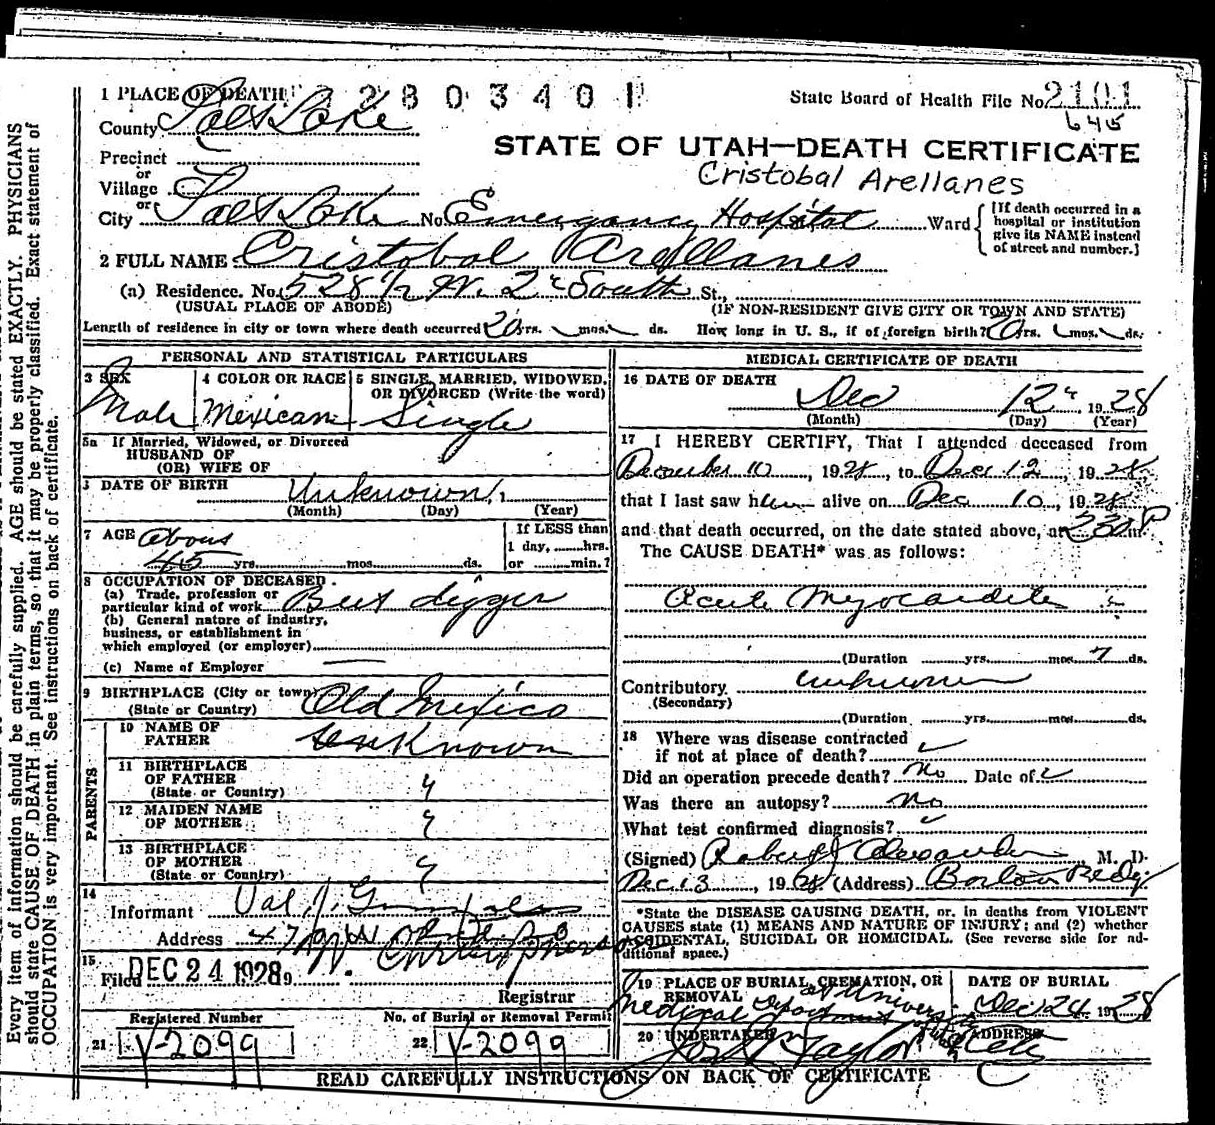 1 PLACE OF DEATH 2803401
State Board of Health File No. 2101
County Salt Lake
645
STATE OF UTAH—DEATH CERTIFICATE
Precinct
or
Village
Cristobal Arellanes
or
City Salt Lake No. Emergency Hospital Ward
[If death occurred in a hospital or institution give its NAME instead of street and number.]
2 FULL NAME Cristobal Arellanes
(a) Residence. No. 528 1/2 W. 2d South St.,
(USUAL PLACE OF ABODE) (IF NON-RESIDENT GIVE CITY OR TOWN AND STATE)
Length of residence in city or town where death occurred yrs. mos. ds. How long in U. S., if of foreign birth? yrs. mos. ds.
PERSONAL AND STATISTICAL PARTICULARS
3 SEX
Male
4 COLOR OR RACE
Mexican
5 SINGLE, MARRIED, WIDOWED, OR DIVORCED (Write the word)
Single
5a If Married, Widowed, or Divorced
HUSBAND OF
(OR) WIFE OF
DATE OF BIRTH Unknown
(Month) (Day) (Year)
7 AGE about
45 yrs. mos. ds.
If LESS than
1 day, hrs.
or min.?
8 OCCUPATION OF DECEASED
(a) Trade, profession or
particular kind of work Beet digger
(b) General nature of industry,
business, or establishment in
which employed (or employer)
(c) Name of Employer
9 BIRTHPLACE (City or town)
(State or Country) Old Mexico
PARENTS
10 NAME OF
FATHER Unknown
11 BIRTHPLACE
OF FATHER
(State or Country)
12 MAIDEN NAME
OF MOTHER
13 BIRTHPLACE
OF MOTHER
(State or Country)
14
Informant Val J.
Address
15
Filed DEC 24 1928
Registrar
Registered Number
21 V-2099
No. of Burial or Removal Permit
22 V-2099
MEDICAL CERTIFICATE OF DEATH
16 DATE OF DEATH
Dec 12 1928
(Month) (Day) (Year)
17 I HEREBY CERTIFY, That I attended deceased from
December 10, 1928, to Dec 12, 1928
that I last saw him alive on Dec 10, 1928
and that death occurred, on the date stated above, at 230 P m.
The CAUSE DEATH* was as follows:
Acute Myocarditis
(Duration yrs. mos. 7 ds.
Contributory unknown
(Secondary)
(Duration yrs. mos. ds.
18 Where was disease contracted
if not at place of death?
Did an operation precede death? No Date of
Was there an autopsy? No
What test confirmed diagnosis?
(Signed) Robert J Alexander, M. D.
Dec 13, 1928 (Address) Boston Bldg
*State the DISEASE CAUSING DEATH, or, in deaths from VIOLENT
CAUSES state (1) MEANS AND NATURE OF INJURY; and (2) whether
ACCIDENTAL, SUICIDAL OR HOMICIDAL. (See reverse side for additional space.)
19 PLACE OF BURIAL, CREMATION, OR
REMOVAL
Medical Department
DATE OF BURIAL
Dec 24 1928
20 UNDERTAKER Taylor
ADDRESS City
READ CAREFULLY INSTRUCTIONS ON BACK OF CERTIFICATE
Every item of information should be carefully supplied. AGE should be stated EXACTLY. PHYSICIANS
should state CAUSE OF DEATH in plain terms, so that it may be properly classified. Exact statement of
OCCUPATION is very important. See instructions on back of certificate.